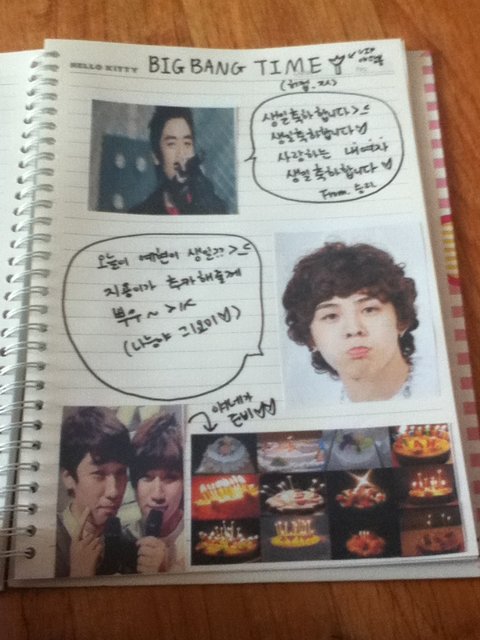 HELLO KITTY
BIGBANG TIME
생일축하합니다 >_<
생일축하합니다♡
사랑하는 내여자
생일축하합니다♡
From. 승리
오늘이 예현이 생일?? >_<
지용이가 축카해줄께
뿌우~ >ㅈ<
(나능야 귀요미♡)
야네가
준비♡♡